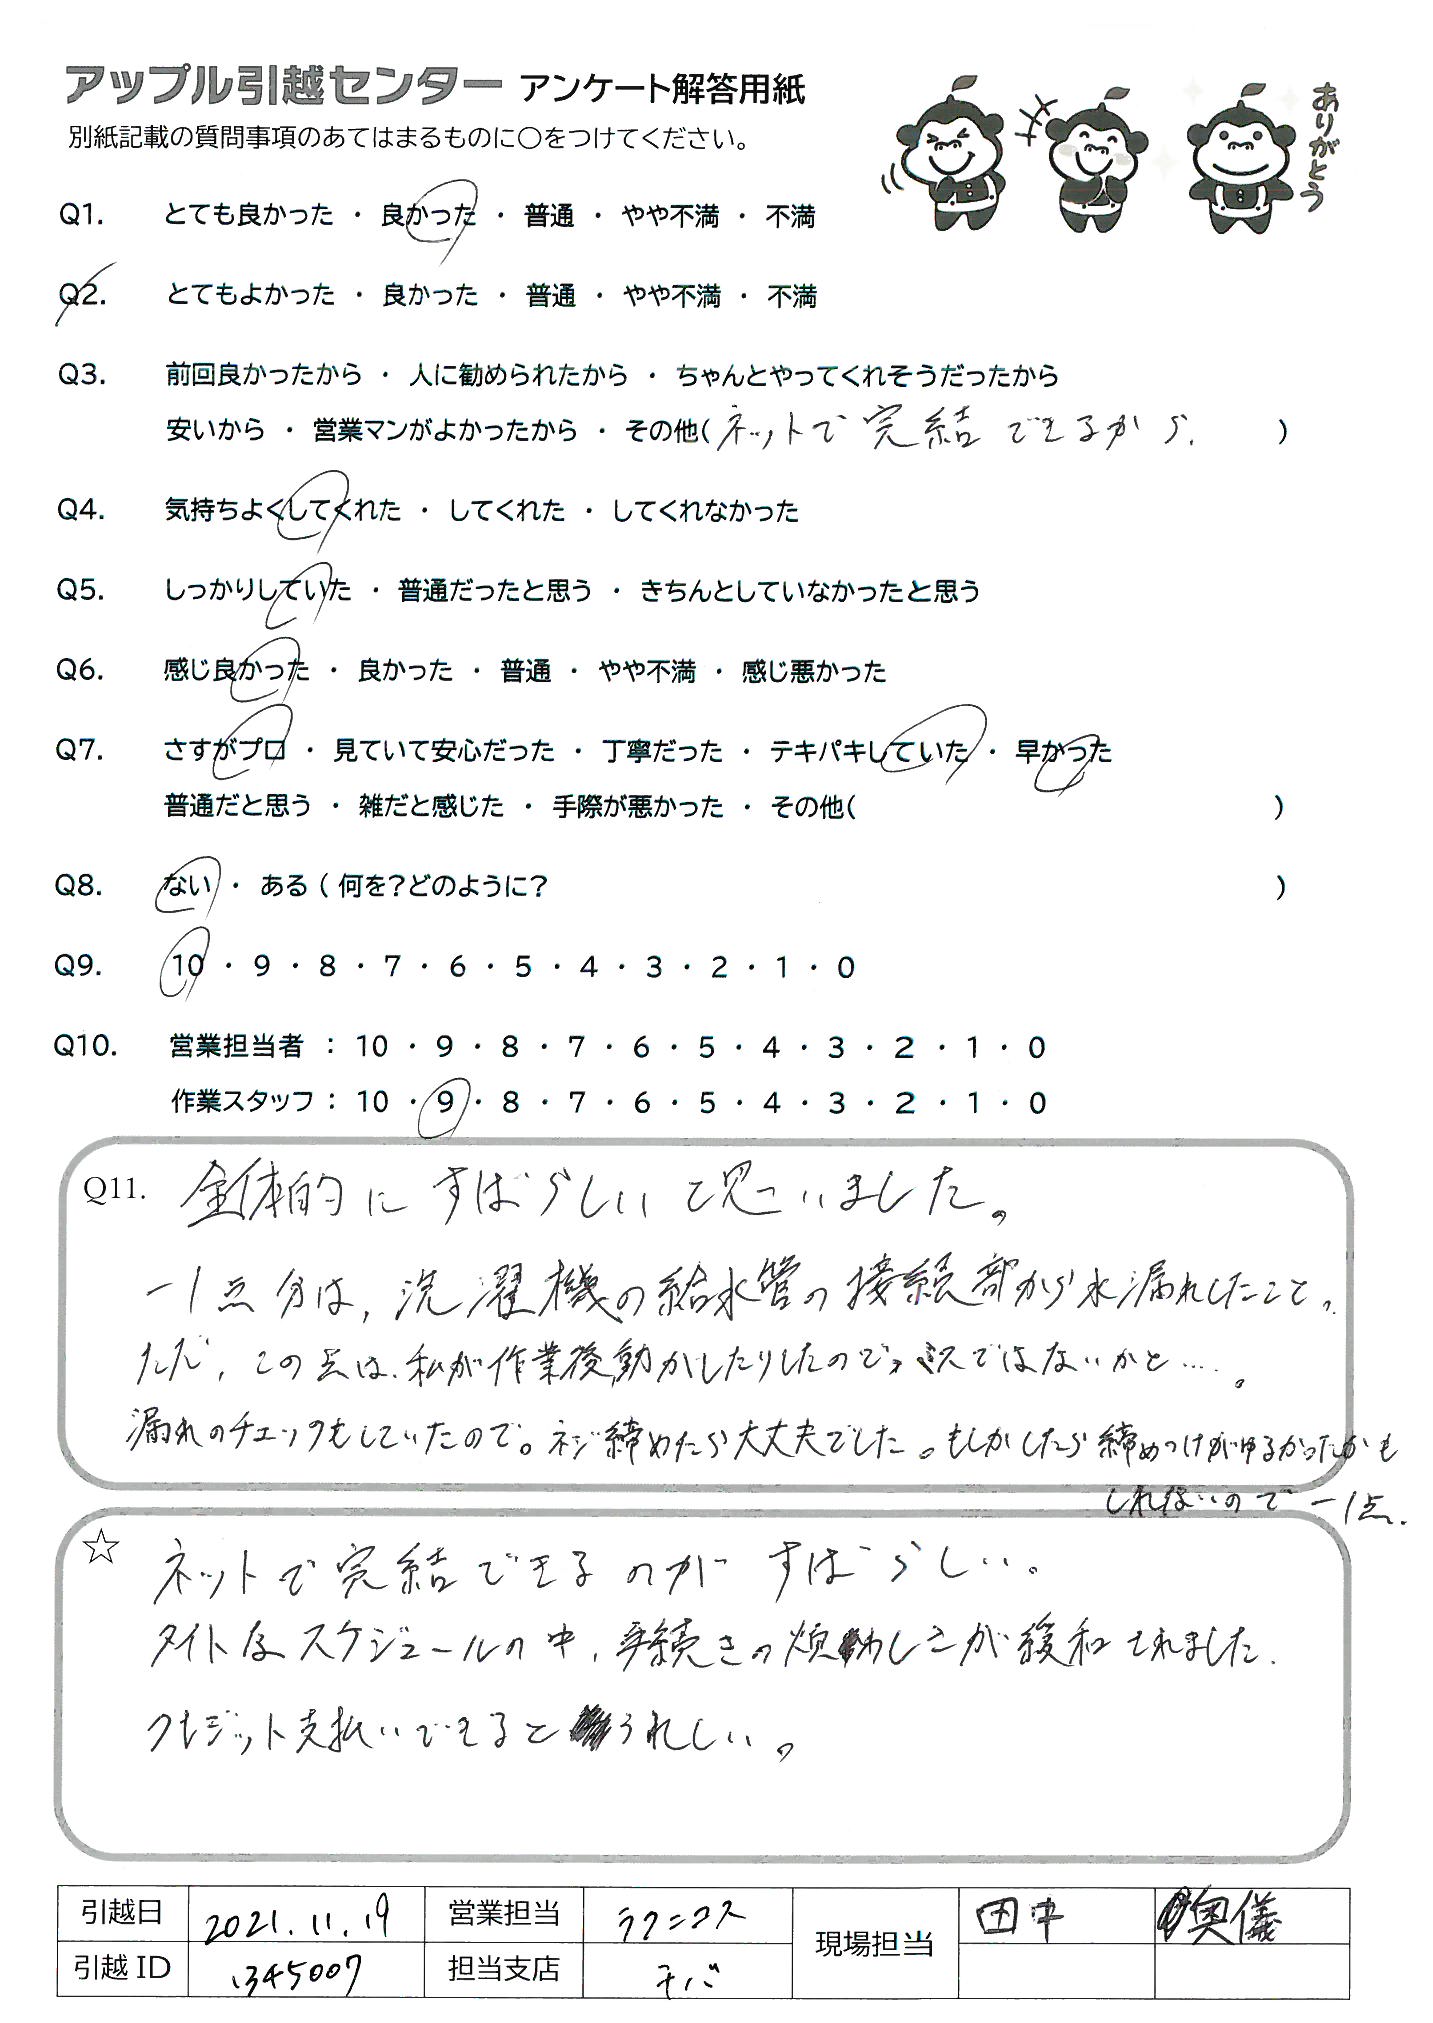 アップル引越センター アンケート解答用紙
別紙記載の質問事項のあてはまるものに○をつけてください。
ありがとう
Q1. とても良かった ・ 良かった ・ 普通 ・ やや不満 ・ 不満
Q2. とてもよかった ・ 良かった ・ 普通 ・ やや不満 ・ 不満
Q3. 前回良かったから ・ 人に勧められたから ・ ちゃんとやってくれそうだったから
安いから ・ 営業マンがよかったから ・ その他(ネットで完結できるから. )
Q4. 気持ちよくしてくれた ・ してくれた ・ してくれなかった
Q5. しっかりしていた ・ 普通だったと思う ・ きちんとしていなかったと思う
Q6. 感じ良かった ・ 良かった ・ 普通 ・ やや不満 ・ 感じ悪かった
Q7. さすがプロ ・ 見ていて安心だった ・ 丁寧だった ・ テキパキしていた ・ 早かった
普通だと思う ・ 雑だと感じた ・ 手際が悪かった ・ その他( )
Q8. ない ・ ある ( 何を?どのように? )
Q9. 10 ・ 9 ・ 8 ・ 7 ・ 6 ・ 5 ・ 4 ・ 3 ・ 2 ・ 1 ・ 0
Q10. 営業担当者 : 10 ・ 9 ・ 8 ・ 7 ・ 6 ・ 5 ・ 4 ・ 3 ・ 2 ・ 1 ・ 0
作業スタッフ : 10 ・ 9 ・ 8 ・ 7 ・ 6 ・ 5 ・ 4 ・ 3 ・ 2 ・ 1 ・ 0
Q11. 全体的にすばらしいと思いました。
-1点分は, 洗濯機の給水管の接続部から水漏れしたこと。
ただ, この点は、私が作業後動かしたりしたので, ミスではないかと....。
漏れのチェックもしていたので。ネジ締めたら大丈夫でした。もしかしたら締めつけがゆるかったかも
しれないので -1点.
☆ ネットで完結できるのがすばらしい。
タイトなスケジュールの中, 手続きの煩わしさが緩和されました.
クレジット支払いできるとうれしい。
引越日 2021.11.19 営業担当 ラクニコス 現場担当 田中 奥儀
引越ID 1345007 担当支店 チバ